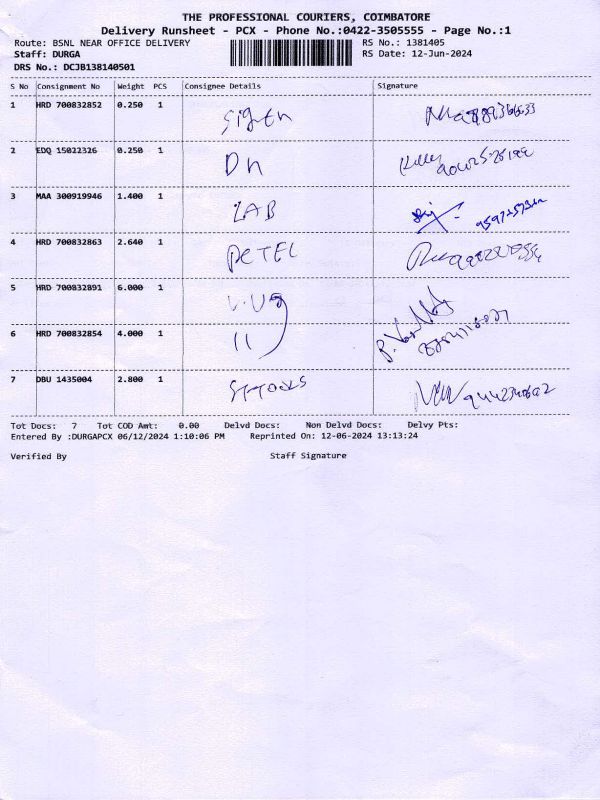 THE PROFESSIONAL COURIERS, COIMBATORE
Delivery Runsheet - PCX - Phone No.:0422-3505555 - Page No.:1
Route: BSNL NEAR OFFICE DELIVERY RS No.: 1381405
Staff: DURGA RS Date: 12-Jun-2024
DRS No.: DCJB138140501
S No Consignment No Weight PCS Consignee Details Signature
1 HRD 700832852 0.250 1
2 EDQ 15022326 0.250 1 Dn
3 MAA 300919946 1.400 1 LAB
4 HRD 700832863 2.640 1 PETEL
5 HRD 700832891 6.000 1
6 HRD 700832854 4.000 1 11
7 DBU 1435004 2.800 1
Tot Docs: 7 Tot COD Amt: 0.00 Delvd Docs: Non Delvd Docs: Delvy Pts:
Entered By :DURGAPCX 06/12/2024 1:10:06 PM Reprinted On: 12-06-2024 13:13:24
Verified By Staff Signature